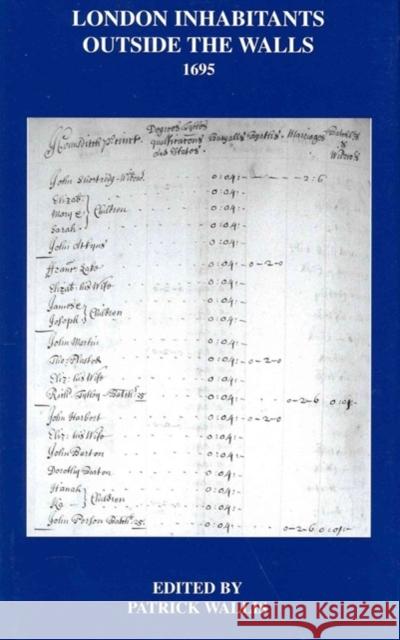 LONDON INHABITANTS
OUTSIDE THE WALLS
1695
Degrees Titles
qualificacons
and Estates
Buryalls
Marriages
Batchellrs
&
Widowrs
John Widowr 0:04:- 2:6
Elizab
Mary Children 0:04:-
Sarah 0:04:-
John Atkyns 0:04:-
0:04: 0-2-0
Elizab: his Wife 0:04:-
James Children 0:04:-
Joseph 0:04:-
John Martin 0:04:-
Tho: 0:04:- 0-2-0
Eliz: his Wife 0:04:-
Batchr 25 0:04:- 0-2-6
John Harbert 0:04:- 0-2-0
Eliz: his Wife 0:04:-
John Barton 0:04:-
Dorothy Barton 0:04:-
Hanah Children 0:04:-
0:04:-
John Person Batchr 25: 0-2-6
EDITED BY
PATRICK WALLIS
BOOKS